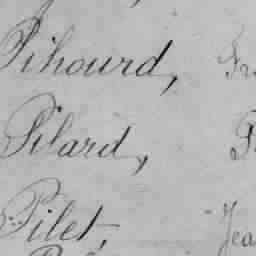 Pihourd, Fr
Pilard, F
Pilet, Jea